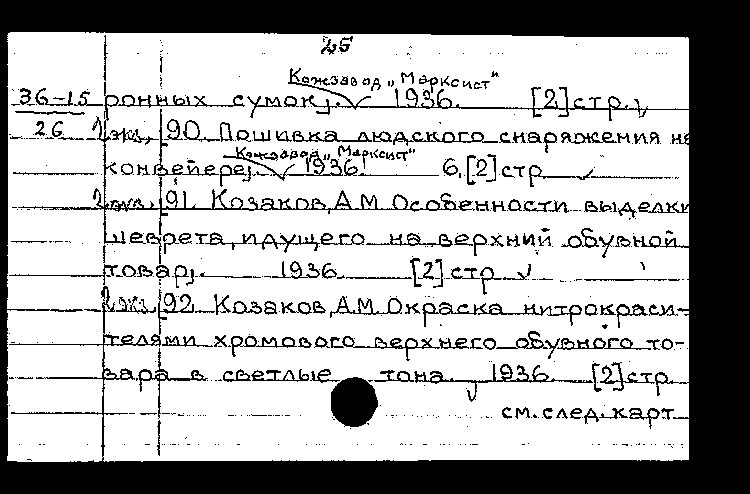 25
Кожзавод „Марксист"
36-15 ронных сумок]. 1936. [2] стр.
26 2 экз. [90. Пошивка людского снаряжения на
Кожзавод „Марксист"
конвейере]. 1936. 6,[2] стр
2 экз. [91. Козаков, А.М. Особенности выделки
шеврета, идущего на верхний обувной
товар]. 1936. [2] стр
2 экз. [92. Козаков, А.М. Окраска нитрокраси-
телями хромового верхнего обувного то-
вара в светлые тона. 1936. [2] стр
см. след. карт